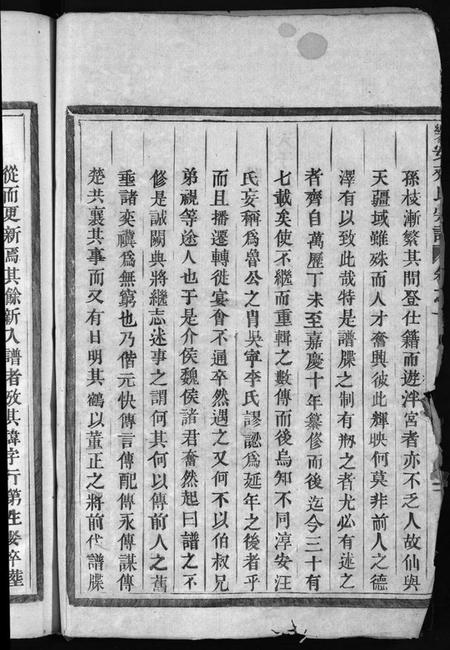 孫枝漸繁其間登仕籍而遊泮宮者亦不乏人故仙與
天疆域雖殊而人才奮興彼此輝映何莫非前人之德
澤有以致此哉特是譜牒之制有刱之者尤必有述之
者齊自萬厯丁未至嘉慶十年纂修而後迄今三十有
七載矣使不繼而重輯之數傳而後烏知不同淳安汪
氏妄稱爲魯公之肖吳寧李氏謬認爲延年之後者乎
而且播遷轉徙宴會不通卒然遇之又何不以伯叔兄
弟視等途人也于是介侯魏侯諸君奮然起曰譜之不
修是誠闕典將繼志述事之謂何其何以傳前人之舊
垂諸奕禩爲無窮也乃偕元快傳言傳配傳永傳謀傳
楚共襄其事而又有日明其鶴以董正之將前代譜牒
從而更新焉其餘新入譜者攷其諱字行第生娶卒塟